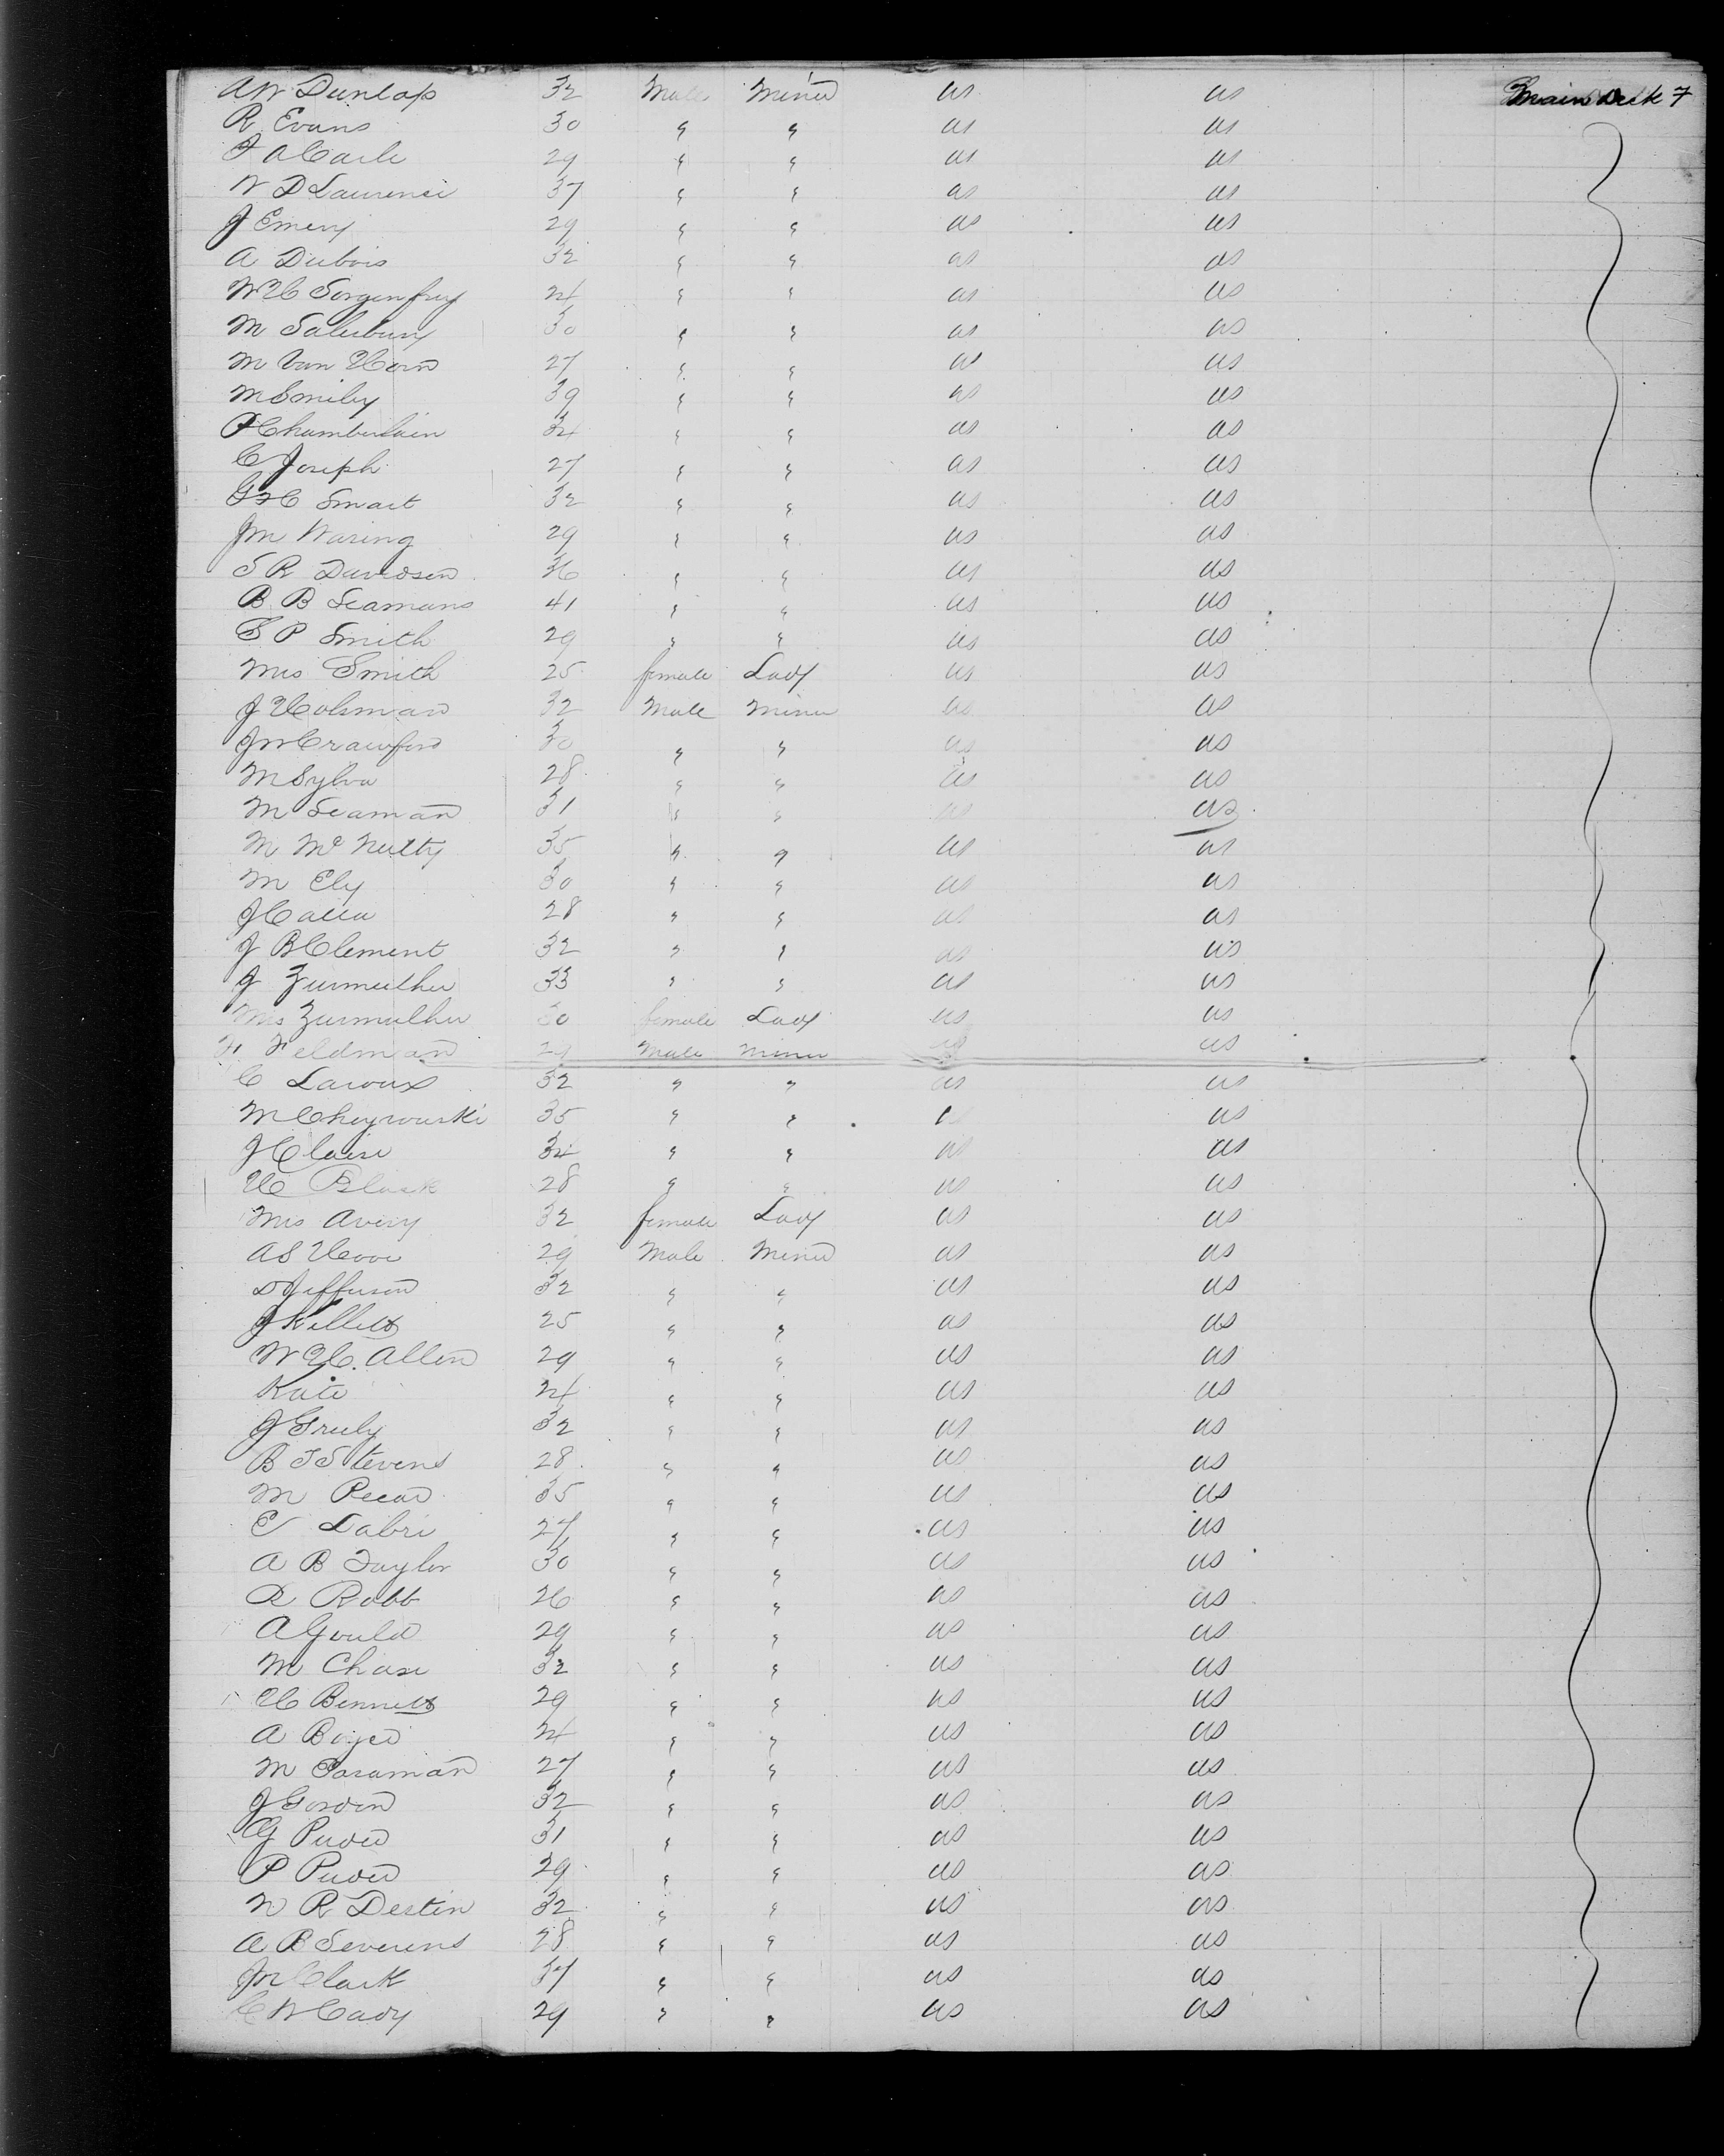 AW Dunlap 32 Male Miner us us Main Deck 7
R Evans 30 " " us us
J A Carle 29 " " us us
W D Laurence 37 " " us us
J Emery 29 " " us us
A Dubois 32 " " us us
W H Sorgenfrey 24 " " us us
M Salisbury 30 " " us us
M Van Horn 27 " " us us
M Smiley 39 " " us us
P Chamberlain 34 " " us us
C Joseph 27 " " us us
G H Smart 32 " " us us
J M Waring 29 " " us us
S R Davidson 36 " " us us
B B Seamans 41 " " us us
S P Smith 29 " " us us
Mrs Smith 25 female Lady us us
J Holsman 32 Male Miner us us
J W Crawford 30 " " us us
M Sylva 28 " " us us
M Seaman 31 " " us us
M McNulty 35 " " us us
M Ely 30 " " us us
J 28 " " us us
J B Clement 32 " " us us
J Zurmulher 33 " " us us
Mrs Zurmulher 30 female Lady us us
H Feldman 29 Male Miner us us
C Laroux 32 " " us us
M 35 " " us us
J Claise 34 " " us us
H Black 28 " " us us
Mrs Avery 32 female Lady us us
A S 29 Male Miner us us
D Jefferson 32 " " us us
J Kellett 25 " " us us
W H. Allen 29 " " us us
Kate 24 " " us us
J Gruly 32 " " us us
B F Stevens 28 " " us us
M 35 " " us us
E Labri 27 " " us us
A B Taylor 30 " " us us
R Robb 26 " " us us
A Gould 29 " " us us
M Chase 32 " " us us
H Bennett 29 " " us us
A Boyer 24 " " us us
M 27 " " us us
J Gordon 32 " " us us
G Purder 31 " " us us
P Purder 29 " " us us
N R Destin 32 " " us us
A B Severens 28 " " us us
J N Clark 37 " " us us
C W Cady 29 " " us us